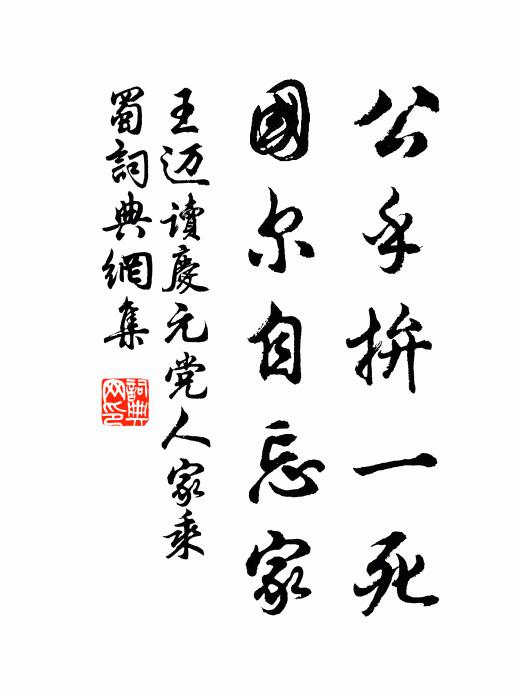 公乎拚一死
國尔自忘家
王迈讀慶元党人家乘
蜀詞典網集
詞典網印